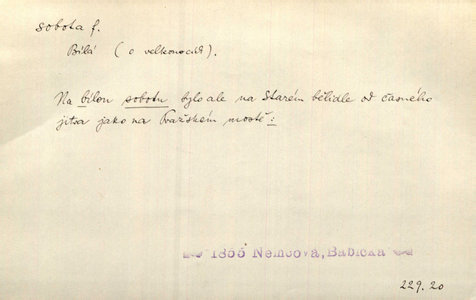 sobota f.
Bílá (o velkonocích).
Na bílou sobotu bylo ale na Starém bělidle od časného
jitra jako na Pražském mostě:
1855 Němcová, Babička
229.20